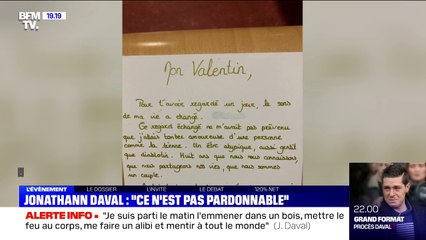 BFM
TV.
19.19
Mon Valentin,
Pour t'avoir regardé un jour, le sens
de ma vie a changé.
Ce regard échangé ne m'avait pas prévenu
que j'allais tomber amoureuse d'une personne
comme la tienne. Un être atypique, aussi gentil
que diablotin. Huit ans que nous nous connaissons,
que nous partageons nos vies, que nous sommes
un couple.
L'ÉVÉNEMENT
LE DOSSIER
L'INVITÉ
LE DÉBAT
120% NET
JONATHANN DAVAL : "CE N'EST PAS PARDONNABLE"
ALERTE INFO "Je suis parti le matin l'emmener dans un bois, mettre le
feu au corps, me faire un alibi et mentir à tout le monde" (J. Daval)
22.00
GRAND
FORMAT
PROCÈS DAVAL